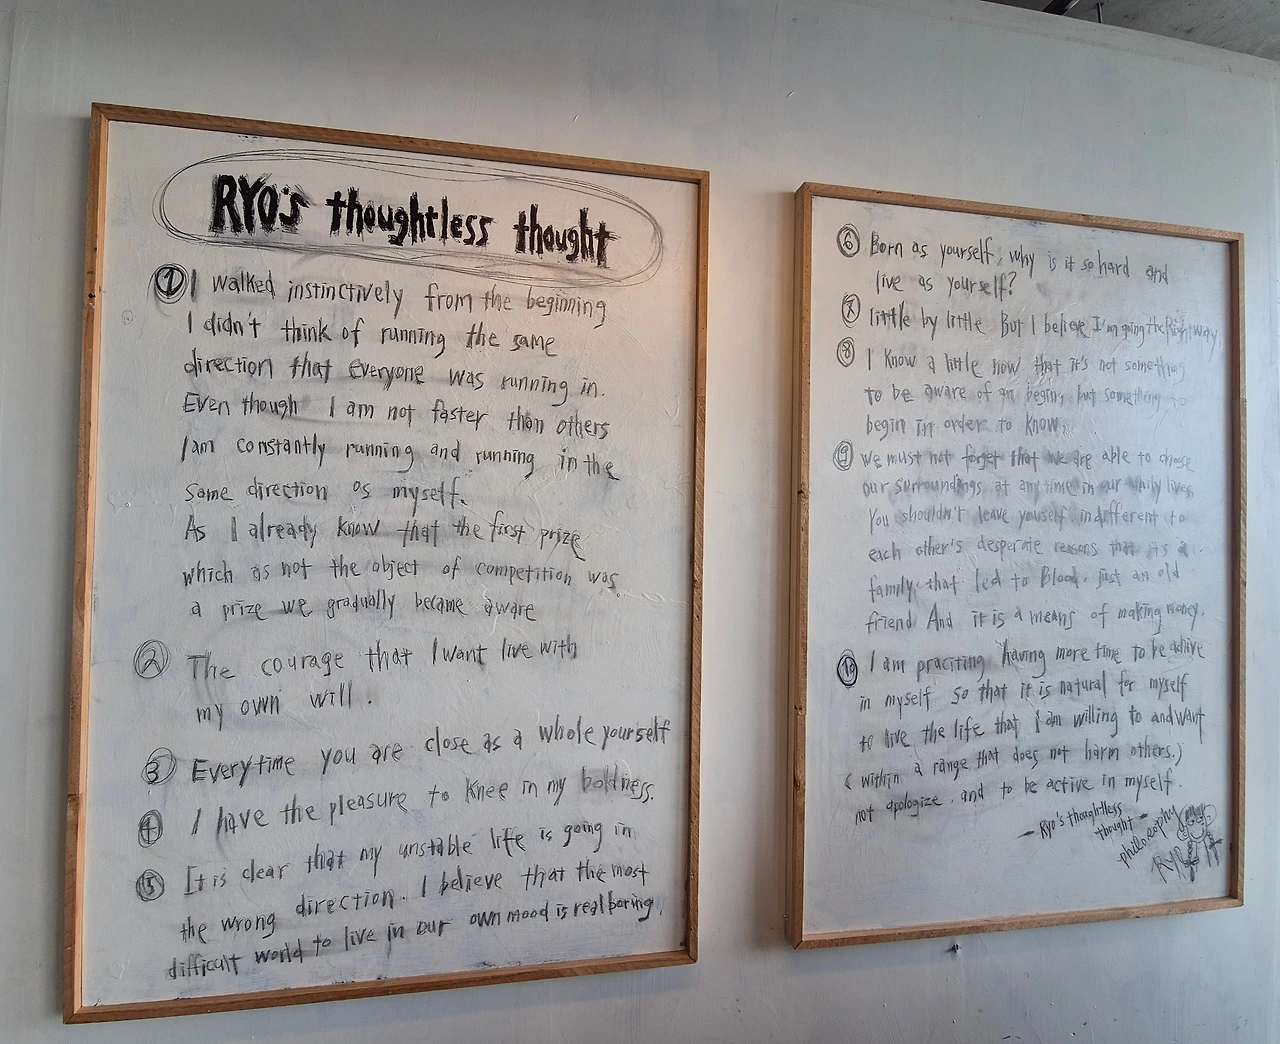 RYO's thoughtless thought
① I walked instinctively from the beginning
I didn't think of running the same
direction that everyone was running in.
Even though I am not faster than others
I am constantly running and running in the
same direction as myself.
As I already know that the first prize
which as not the object of competition was
a prize we gradually became aware
② The courage that I want live with
my own will.
③ Everytime you are close as a whole yourself
④ I have the pleasure to knee in my boldness.
⑤ It is clear that my unstable life is going in
the wrong direction. I believe that the most
difficult world to live in our own mood is real boring.
⑥ Born as yourself, why is it so hard and
live as yourself?
⑦ little by little But I believe I'm going the Right way.
⑧ I know a little now that it's not something
to be aware of an begin, but something to
begin in order to know.
⑨ we must not forget that we are able to choose
our surroundings at any time in our daily lives
You shouldn't leave yourself indifferent to
each other's desperate reasons that its a
family, that led to Blood, just an old
friend And it is a means of making money.
⑩ I am praciting having more time to be achive
in myself so that it is natural for myself
to live the life that I am willing to and want
( within a range that does not harm others.)
not apologize. and to be active in myself.
- Ryo's thoughtless
thought -
philosophy
RYO